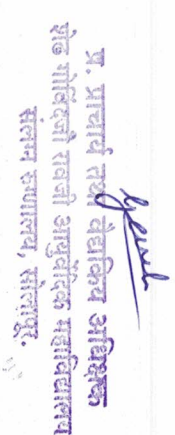 प्र. प्राचार्य तथा वैद्यकिय अधिक्षक
शेठ गोविंदजी रावजी आयुर्वेदिक महाविद्यालय
संलग्न रुग्णालय, सोलापूर.